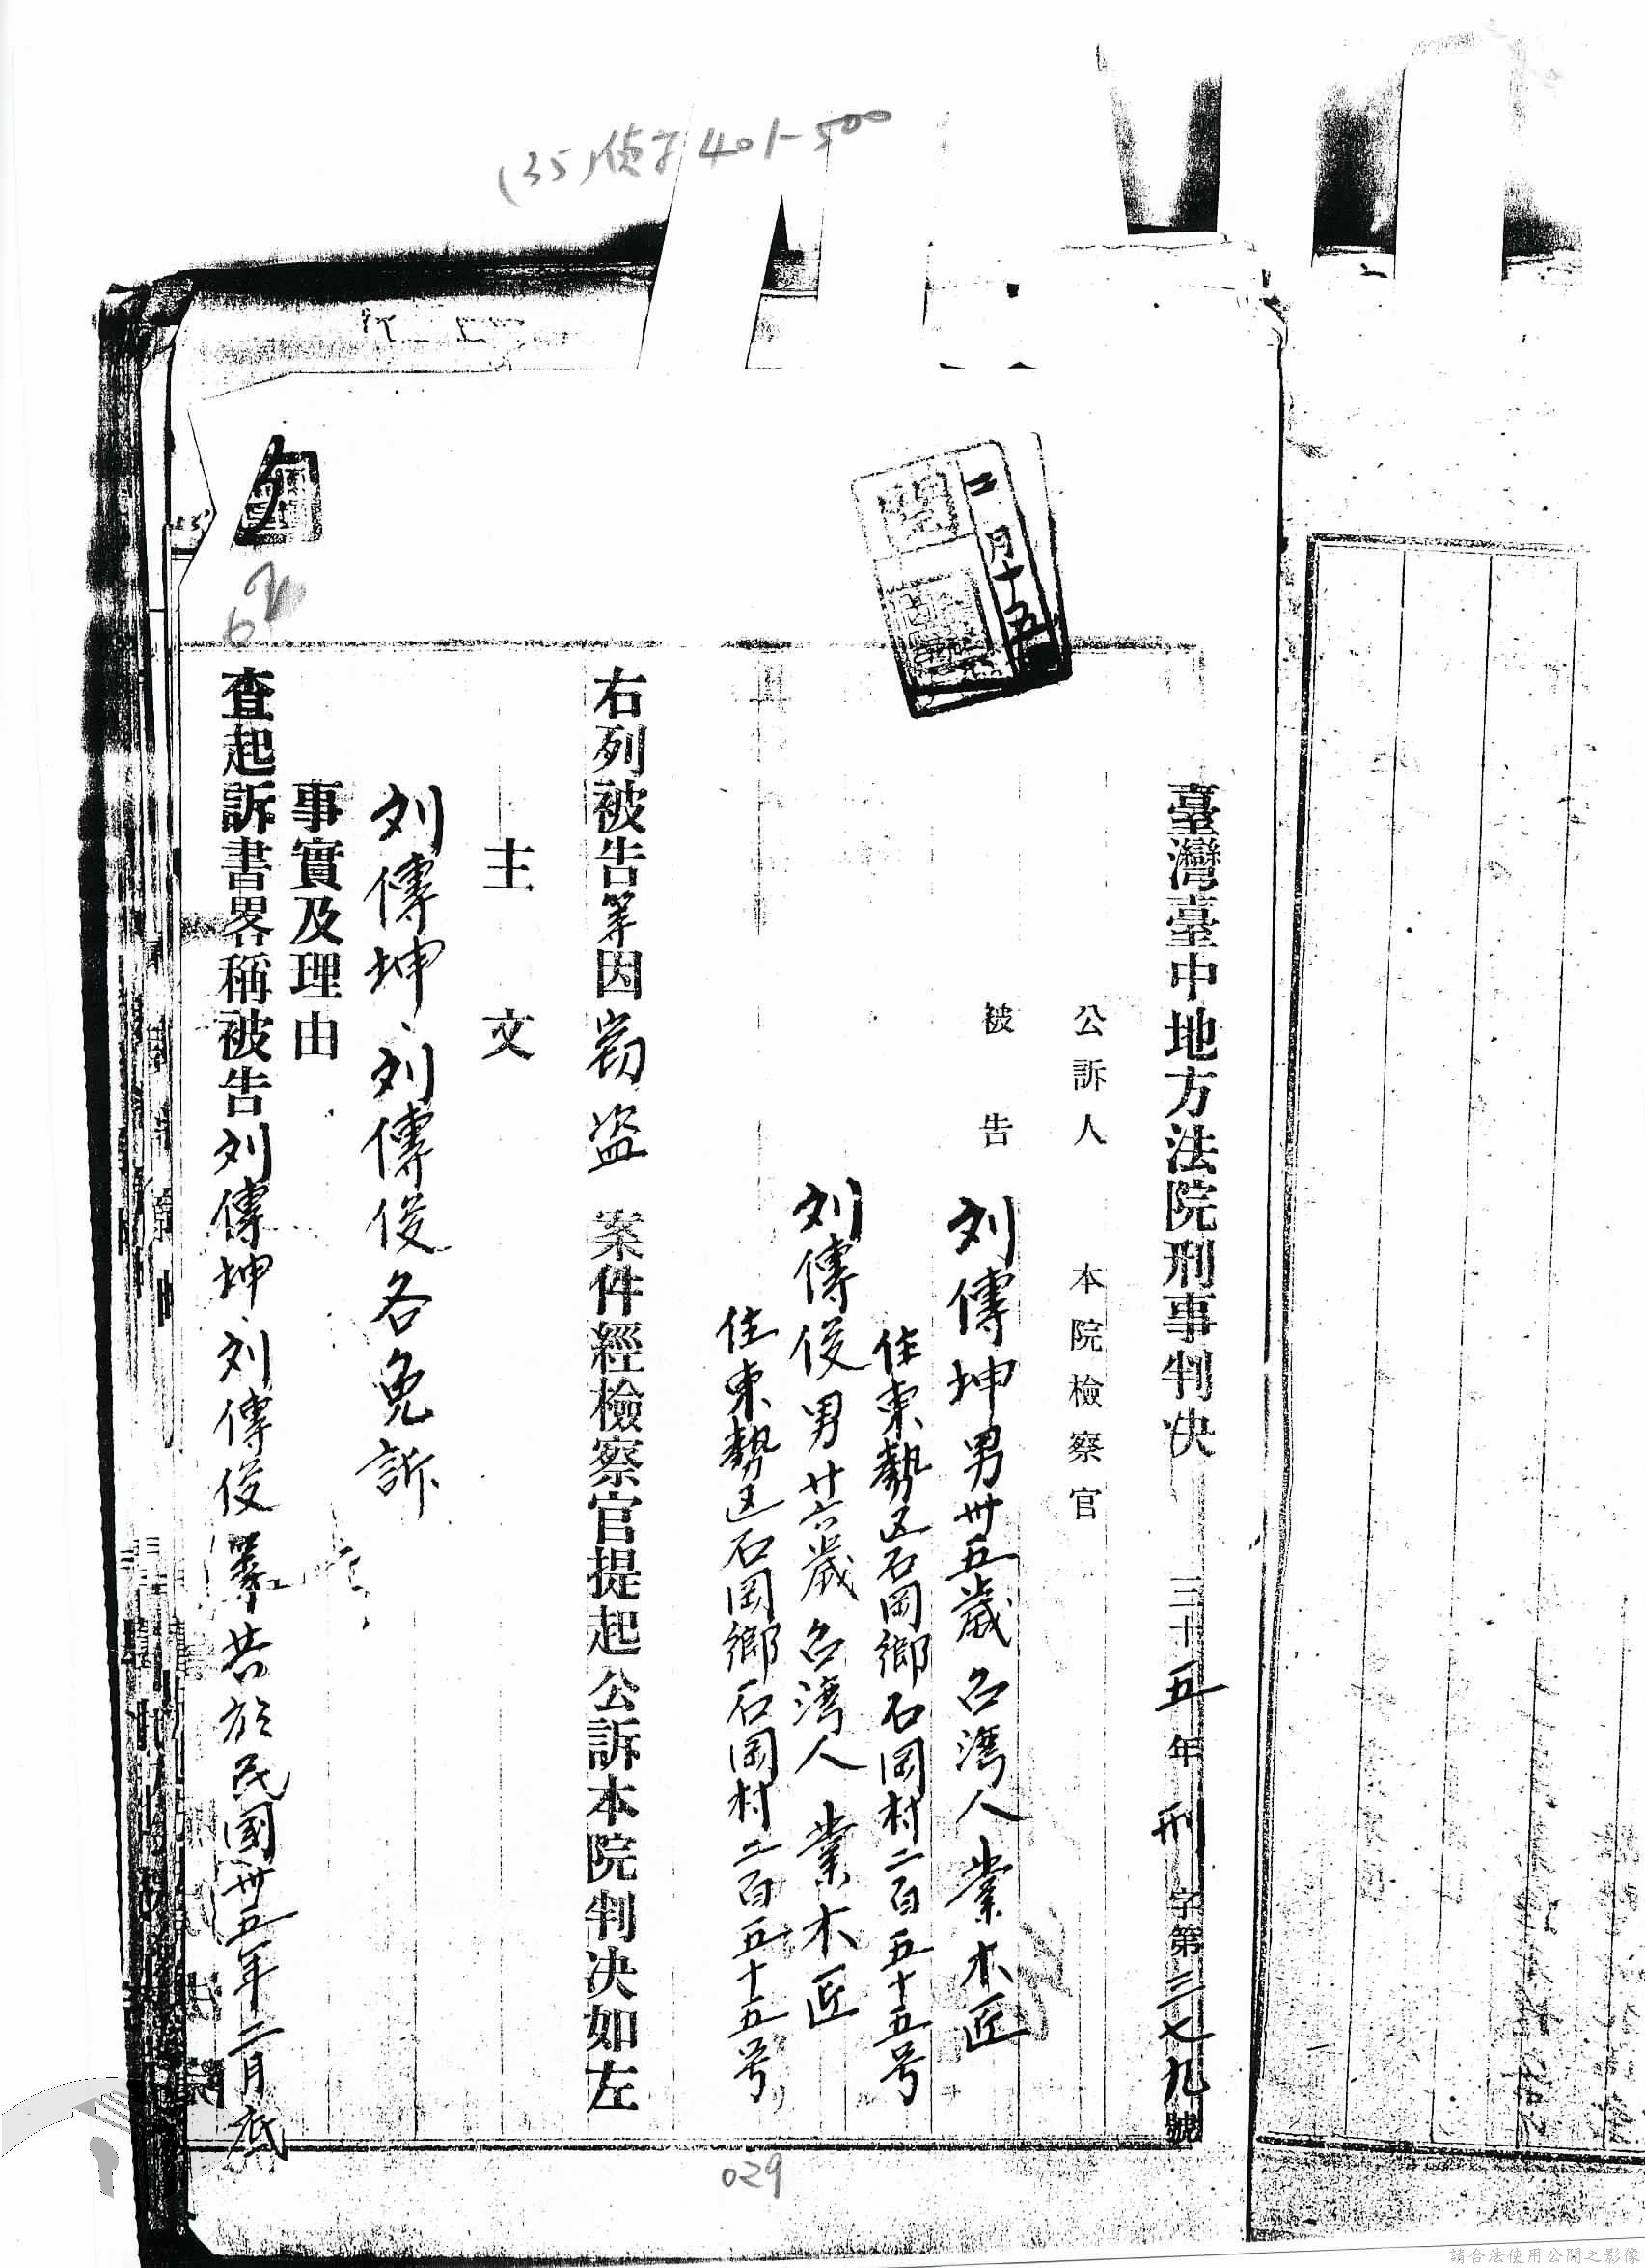 (35)偵字401-500
二月十五
臺灣臺中地方法院刑事判決 三十五年刑字第三七九號
公訴人 本院檢察官
被告 刘傳坤男卅五歲台湾人業木匠
住東勢区石岡鄉石岡村二百五十五号
刘傳俊男廿六歲台湾人業木匠
住東勢区石岡鄉石岡村二百五十五号
右列被告等因窃盗案件經檢察官提起公訴本院判决如左
主文
刘傳坤、刘傳俊各免訴
事實及理由
查起訴書畧稱被告刘傳坤、刘傳俊 共於民國卅五年二月底
029
請合法使用公開之影像